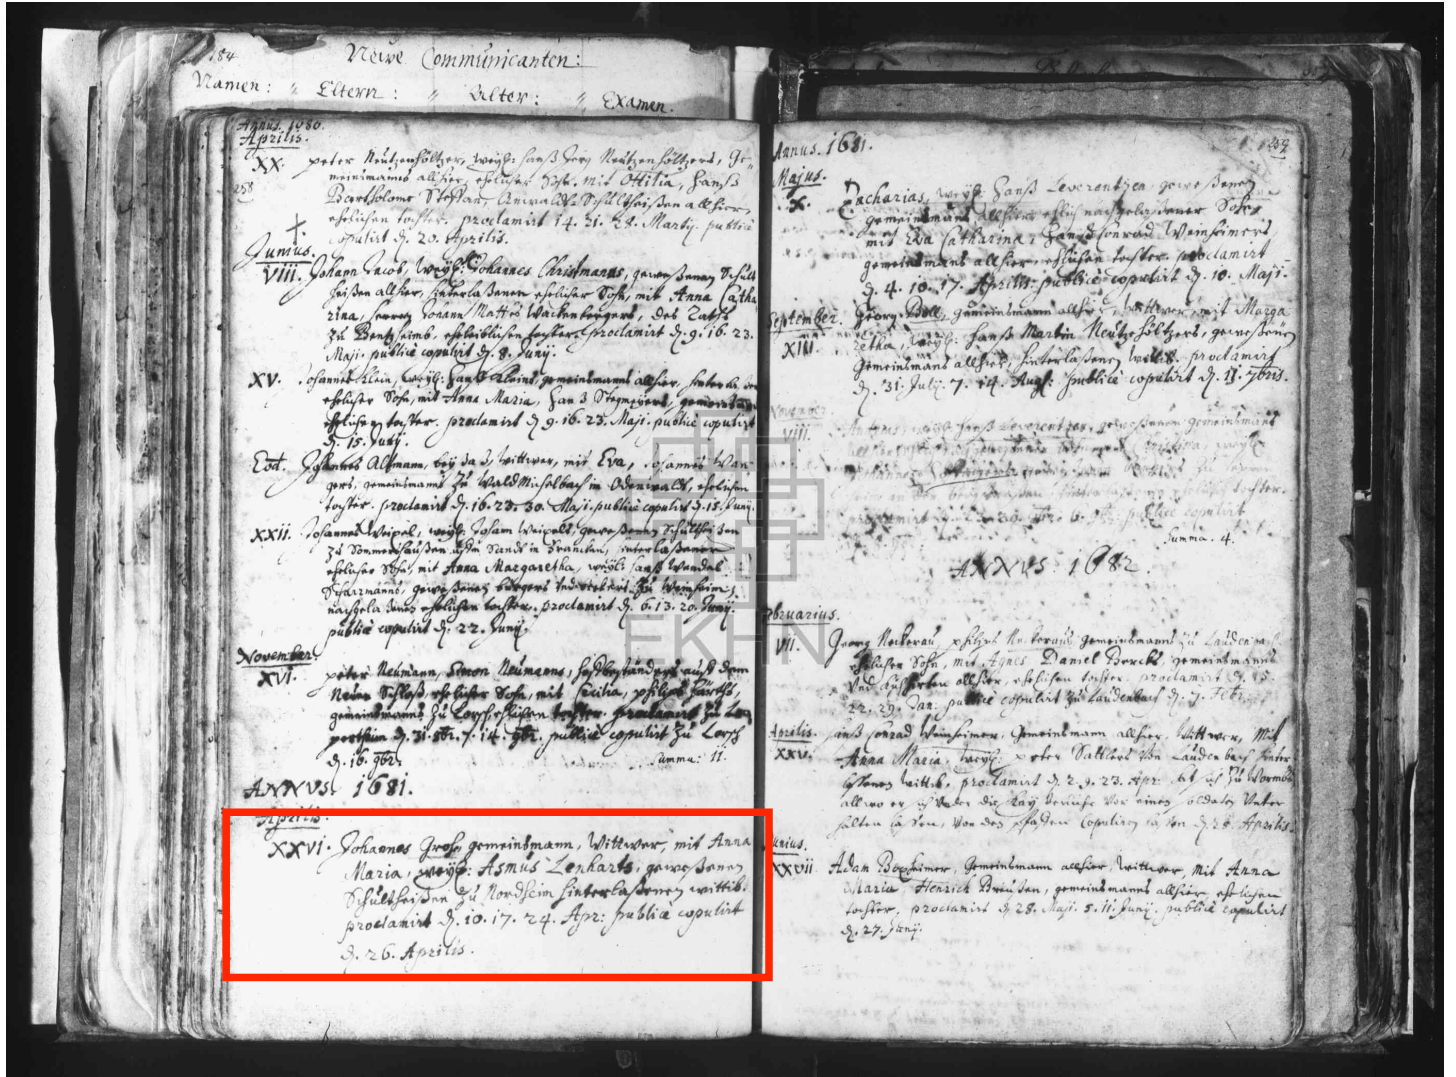 184
Newe Communicanten:
Namen: " Eltern: " Alter: " Examen.
Annus. 1680.
Aprilis.
XX. peter Neutzenhöltzer, weyl: Hanß Jerg Neutzenhöltzers, Ge-
meinsmanns allhier, ehelicher Sohn, mit Ottilia, Hanß
258
Bartholome Stephan, Anwaldt Schultheißen allhier
ehelichen tochter. proclamirt 14. 21. 28. Martij. publicè
copulirt d. 20. Aprilis.
Junius.
VIII. Johann Jacob, weyl: Johannes Christmanns, geweßenen Schult
heißen allhier, hinterlaßenen ehelicher Sohn, mit Anna Catha
rina, Herren Johann Mattes Wackenbergers, des Raths
zu Bentzheimb, eheleiblichen tochter. proclamirt d. 9. 16. 23.
Maji. publicè copulirt d. 8. Junij.
XV. Johannes Klein, weyl: Hanß Kleins gemeinsmanns allhier,
ehelicher Sohn, mit Anna Maria, Han3 Stegmeyers, gemeinsmans
ehelichen tochter. proclamirt d 9. 16. 23. Maji. publicè copulirt
d. 15. Junij.
Eod. Johannes Altmann, bey wittwer, mit Eva, Johannes Wan-
gers, gemeinsmanns zu Wald Michelbach im Odenwaldt, ehelichen
tochter. proclamirt d. 16. 23. 30. Maji. publicè copulirt d. 15. Junij.
XXII. Johannes Weipel, weyl: Johann Weipels, geweßenen Schultheißen
zu Sommershaußen in Francken, hinterlaßener
ehelicher Sohn, mit Anna Margaretha, weyl: Hanß Wendel
geweßenen burgers und zu Weinheim,
nachgelaßenen ehelichen tochter. proclamirt d. 6. 13. 20. Junij.
publicè copulirt d. 22. Junij.
November.
XVI. peter Neumann, Simon Neumanns, hofbeständers auß dem
Neuen Schloß, ehelicher Sohn, mit Cecilia, philips Härths,
gemeinsmanns zu Lorsch ehelichen tochter. proclamirt zu Lam
pertheim d. 31. 8br. 7. 14. 9br. publicè copulirt zu Lorsch
d. 16. 9br.
Summa: 11.
ANNVS. 1681.
Aprilis.
XXVI. Johannes Groh, gemeinsmann, Wittwer, mit Anna
Maria, weyl: Asmus Lenharts, geweßenen
Schultheißen zu Nordheim hinterlaßenen wittib.
proclamirt d. 10. 17. 24. Apr: publicè copulirt
d. 26. Aprilis.
Annus. 1681.
259
Majus.
X. Zacharias, weyl: Hanß Leverentzen, geweßenen
gemeinsmans allhier ehlich nachgelaßener Sohn,
mit Eva Catharina, Hanß Conrad Weinheimers,
gemeinsmans allhier, ehelichen tochter. proclamirt
d. 4. 10. 17. Aprilis. publicè copulirt d. 10. Maji.
September.
XIII. Georg Böll, gemeinsmann allhier, wittwer, mit Marga
retha, weyl: Hanß Martin Neutzhöltzers, geweßenen
Gemeinsmans allhier, hinterlaßenen wittib. proclamirt
d. 31. July. 7. 14. Aug: publicè copulirt d. 13. 7bris.
November.
VIII. Antons, weyl: Hanß Leverentzen, geweßenen gemeinsmans
allhier
tochter.
proclamirt publicè copulirt
Summa. 4.
ANNVS. 1682.
Februarius.
VII. Georg Neckerau, philips Neckeraus gemeinsmanns zu Laudenbach
ehelicher Sohn, mit Agnes Daniel Borcks, gemeinsmanns
und allhier, ehelichen tochter. proclamirt d. 15.
22. 29. Jan: publicè copulirt zu Laudenbach d. 7. Febr.
Aprilis.
XXV. Hanß Conrad Weinheimer, Gemeinsmann allhier, Wittwer, Mit
Anna Maria, weyl: peter Sattlers von Laudenbach hinter
laßenen wittib, proclamirt d. 2. 9. 23. Apr: hat sich zu Wormbs
allwo er sich under die
halten laßen, von den copuliren laßen d. 25. Aprilis.
Junius.
XXVII Adam Boxheimer, Gemeinsmann allhier, wittwer, mit Anna
Maria, Henrich gemeinsmanns allhier ehelichen
tochter, proclamirt d 28. Maji. 5. 11. Junij. publicè copulirt
d. 27. Junij.
EKHN